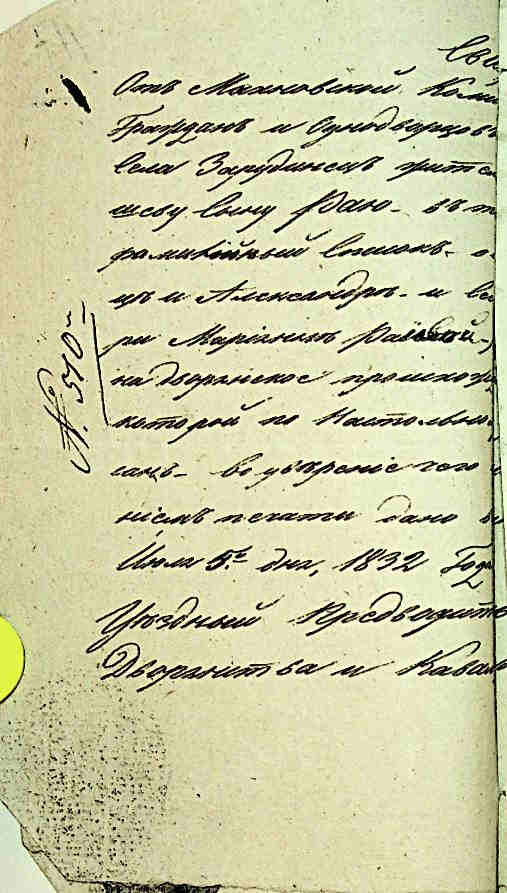 Сви
Отъ Махновской Коми
Гражданъ и Однодворцовъ
села Зарудинецъ жите
шеву сыну Раю - въ
фамилійный списокъ -
цъ и Александръ - и се
ри Маріаннъ Раіовой -
на дворянское происхож
которой по Настольно
санъ - во увѣреніе чего
ніемъ печати дано
Июля 5го дня, 1832 Года
Уѣздный Предводите
Дворянства и Кавал
№ 570й